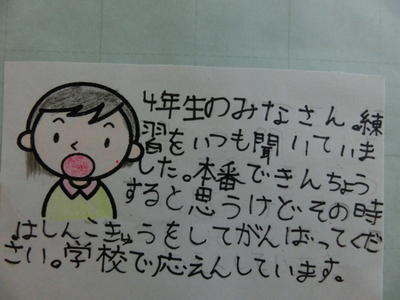 4年生のみなさん。練
習をいつも聞いていま
した。本番できんちょう
すると思うけどその時
はしんこきゅうをしてがんばってくだ
さい。学校で応えんしています。